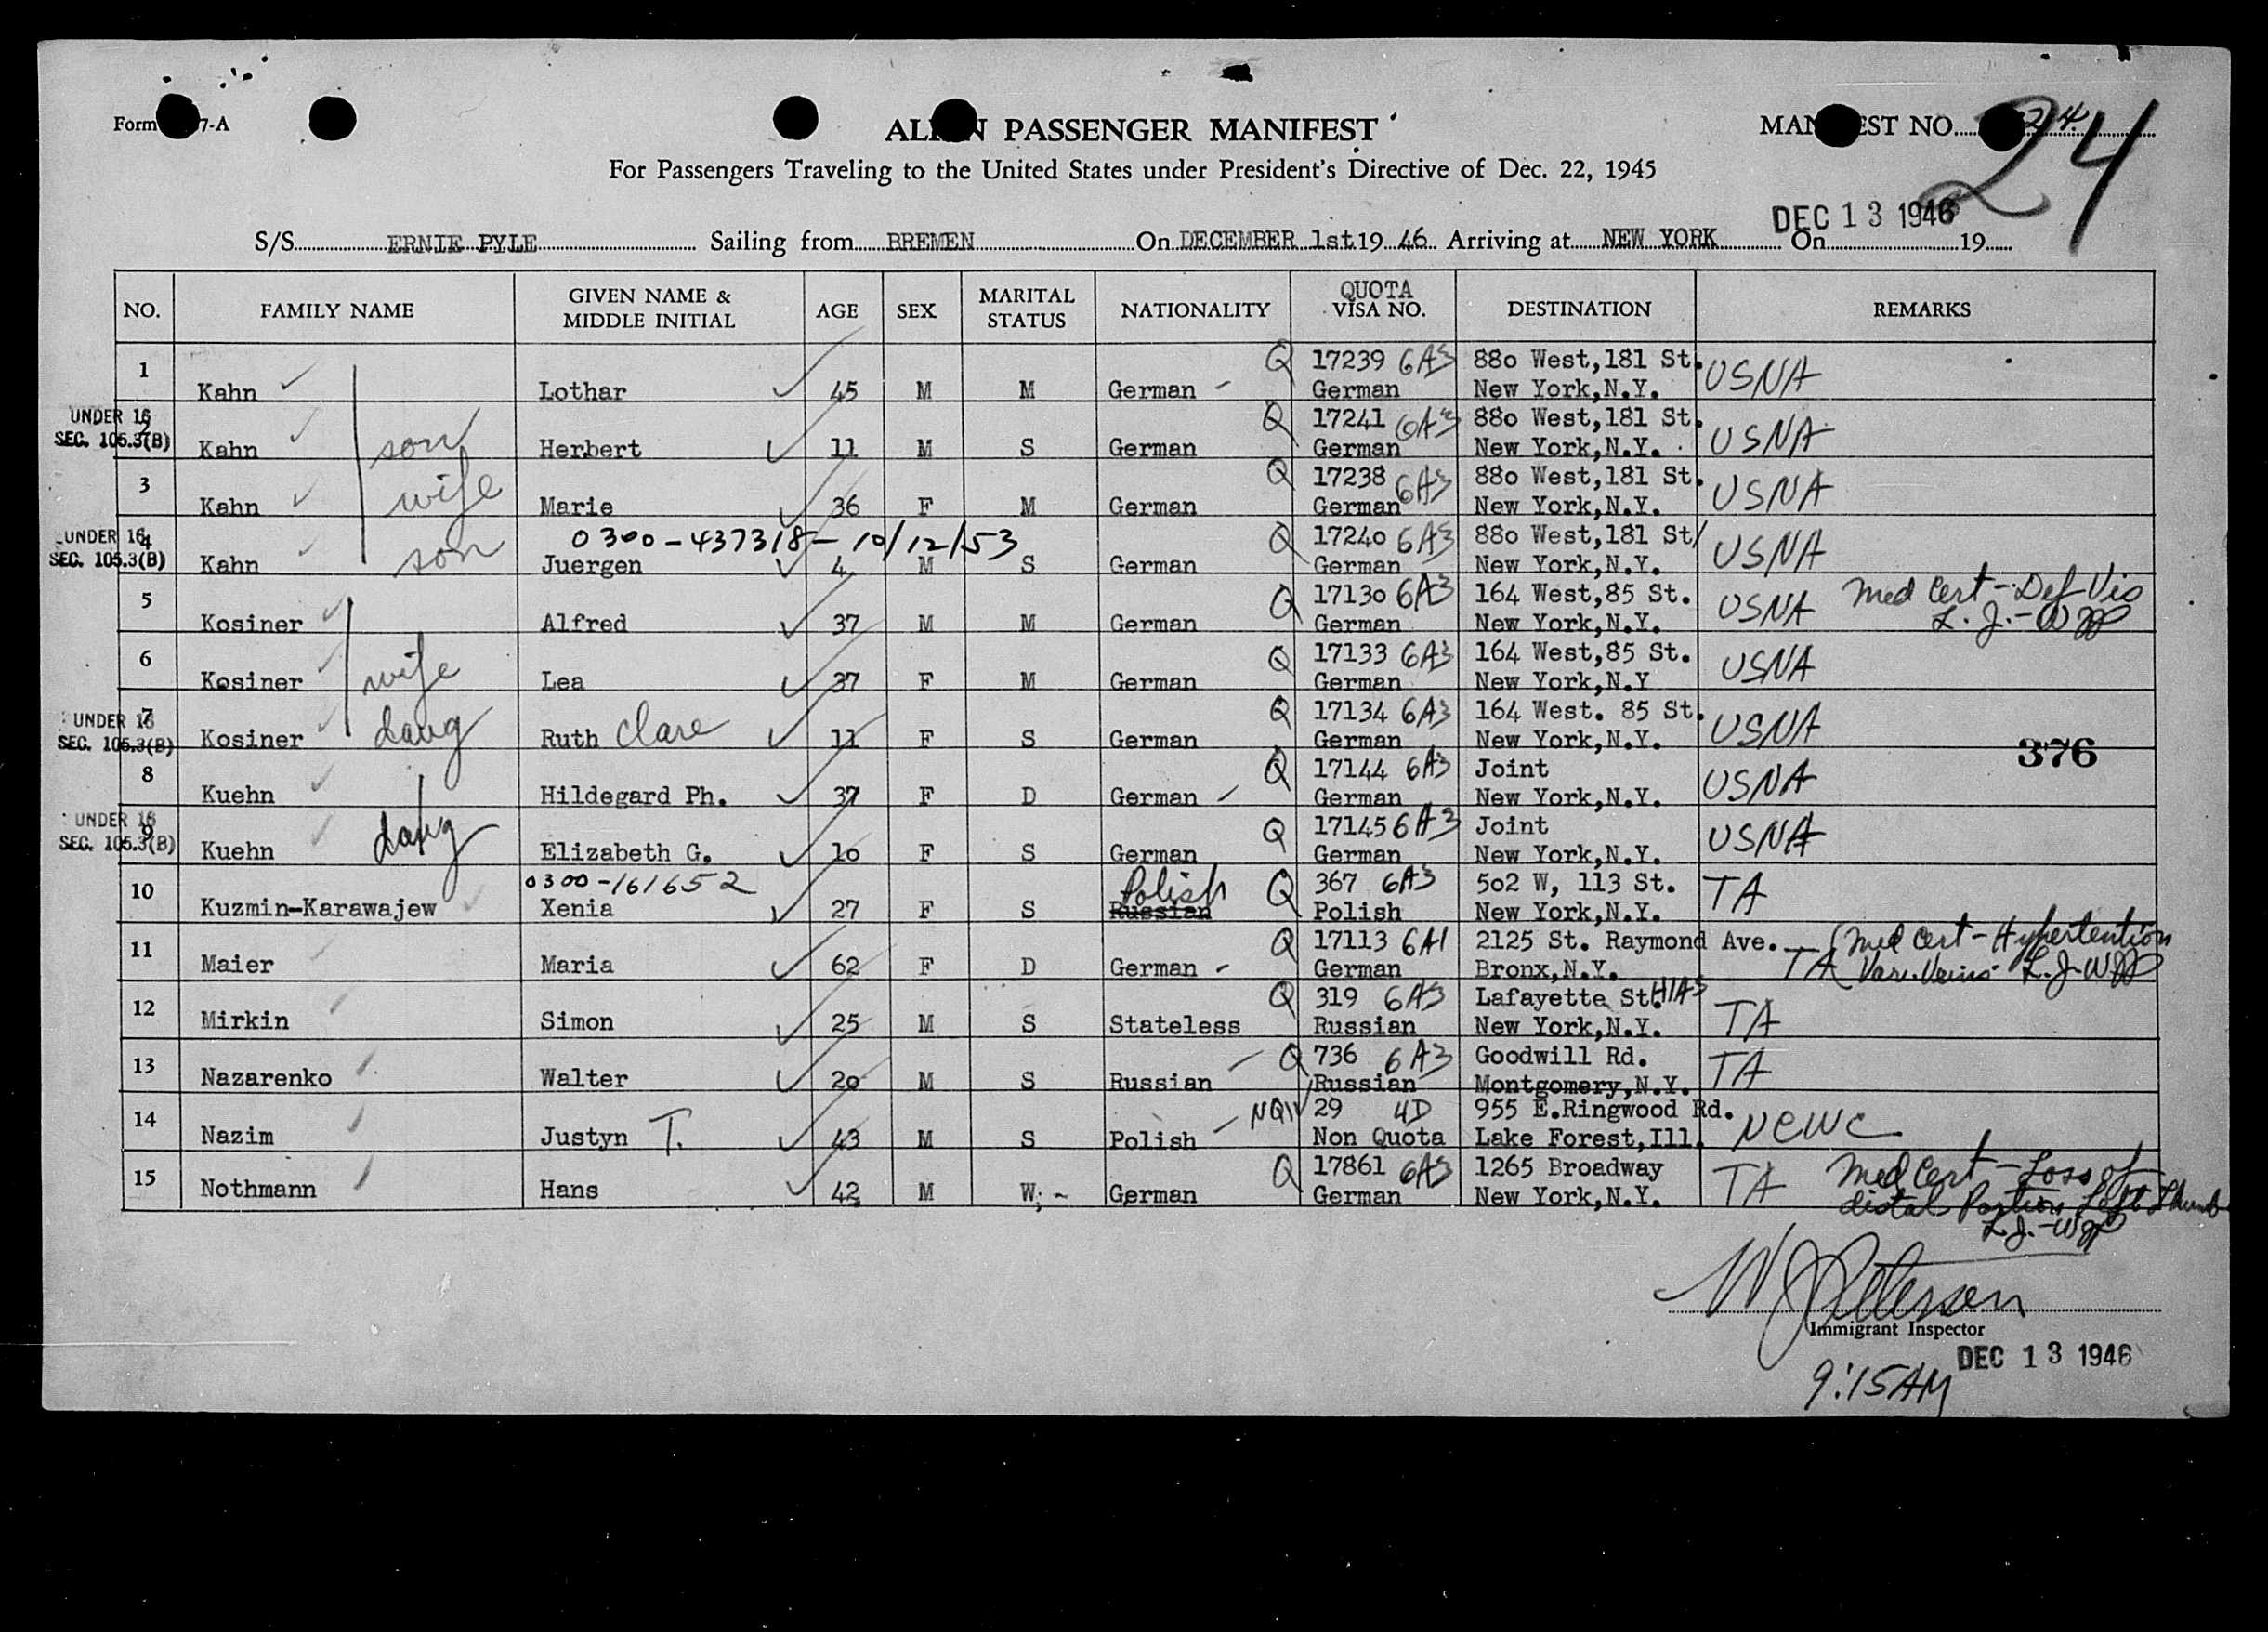 Form 7-A
ALIEN PASSENGER MANIFEST
MANIFEST NO. 24.
24
For Passengers Traveling to the United States under President's Directive of Dec. 22, 1945
DEC 13 1946
S/S ERNIE PYLE Sailing from BREMEN On DECEMBER 1st 19 46 Arriving at NEW YORK On 19
NO. FAMILY NAME GIVEN NAME & MIDDLE INITIAL AGE SEX MARITAL STATUS NATIONALITY QUOTA VISA NO. DESTINATION REMARKS
1 Kahn Lothar 45 M M German Q 17239 6A3 German 880 West,181 St. New York,N.Y. USNA
UNDER 16 SEC. 105.3(B) 2 Kahn son Herbert 11 M S German Q 17241 6A3 German 880 West,181 St. New York,N.Y. USNA
3 Kahn wife Marie 36 F M German Q 17238 6A3 German 880 West,181 St. New York,N.Y. USNA
0300-437318- 10/12/53
UNDER 16 SEC. 105.3(B) 4 Kahn son Juergen 4 M S German Q 17240 6A3 German 880 West,181 St/ New York,N.Y. USNA
5 Kosiner Alfred 37 M M German Q 17130 6A3 German 164 West,85 St. New York,N.Y. USNA Med Cert - Def Vis L.J.-WJP
6 Kosiner wife Lea 37 F M German Q 17133 6A3 German 164 West,85 St. New York,N.Y USNA
UNDER 16 SEC. 105.3(B) 7 Kosiner daug Ruth Clare 11 F S German Q 17134 6A3 German 164 West. 85 St. New York,N.Y. USNA
376
8 Kuehn Hildegard Ph. 37 F D German Q 17144 6A3 German Joint New York,N.Y. USNA
UNDER 16 SEC. 105.3(B) 9 Kuehn daug Elizabeth G. 10 F S German Q 17145 6A3 German Joint New York,N.Y. USNA
0300-161652
10 Kuzmin-Karawajew Xenia 27 F S Polish Russian Q 367 6A3 Polish 502 W, 113 St. New York,N.Y. TA
11 Maier Maria 62 F D German Q 17113 6A1 German 2125 St. Raymond Ave. Bronx,N.Y. TA Med Cert - Hypertention Var. Veins - L.J-WJP
12 Mirkin Simon 25 M S Stateless Q 319 6A3 Russian Lafayette St. HIAS New York,N.Y. TA
13 Nazarenko Walter 20 M S Russian Q 736 6A3 Russian Goodwill Rd. Montgomery,N.Y. TA
14 Nazim Justyn T. 43 M S Polish NQIV 29 4D Non Quota 955 E.Ringwood Rd. Lake Forest,Ill. NCWC
15 Nothmann Hans 42 M W. German Q 17861 6A3 German 1265 Broadway New York,N.Y. TA Med Cert - Loss of distal Portion Left Thumb L.J.-WJP
W J Peterson
Immigrant Inspector
DEC 13 1946
9:15AM